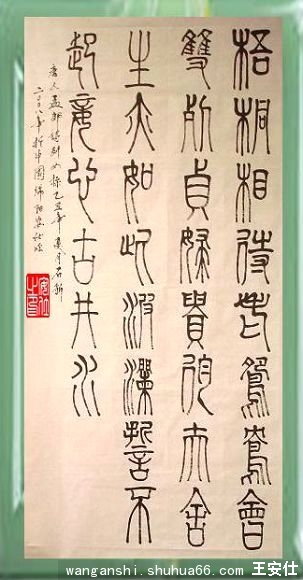 梧桐相待老鴛鴦會
雙死貞婦貴殉夫舍
生亦如此波瀾誓不
起妾心古井水
唐人孟郊詩烈女操
安仕之印
wanganshi.shuhua66.com 王安仕